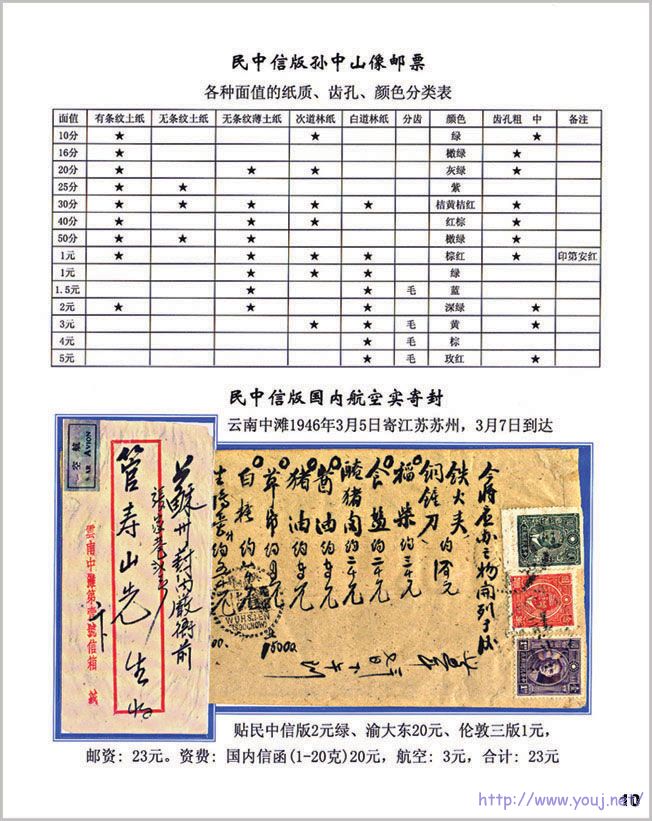 民中信版孙中山像邮票
各种面值的纸质、齿孔、颜色分类表
面值 有条纹土纸 无条纹土纸 无条纹薄土纸 次道林纸 白道林纸 分齿 颜色 齿孔粗 中 备注
10分 ★ ★ 绿 ★
16分 ★ 橄绿 ★
20分 ★ ★ ★ 灰绿 ★
25分 ★ ★ 紫
30分 ★ ★ ★ ★ ★ 桔黄桔红 ★
40分 ★ ★ ★ 红棕 ★
50分 ★ ★ ★ 橄绿 ★
1元 ★ ★ ★ ★ 棕红 ★ 印第安红
1元 ★ ★ ★ 绿
1.5元 ★ ★ 毛 蓝
2元 ★ ★ ★ 深绿 ★
3元 ★ ★ 毛 黄 ★
4元 ★ 毛 棕
5元 ★ 毛 玫红 ★
民中信版国内航空实寄封
云南中滩1946年3月5日寄江苏苏州，3月7日到达
航空
PAR AVION
蘇州封门激衛前
管寿山先生
雲南中灘第壹號信箱 緘
今將应办之物開列于後
铁火夹
铜锉刀
稲柴
食盐
猪肉
酱油
猪油
草帋
WUHSIEN
(SOOCHOW)
15000
贴民中信版2元绿、渝大东20元、伦敦三版1元，
邮资：23元。资费：国内信函(1-20克)20元，航空：3元，合计：23元
10
http://www.youj.net/